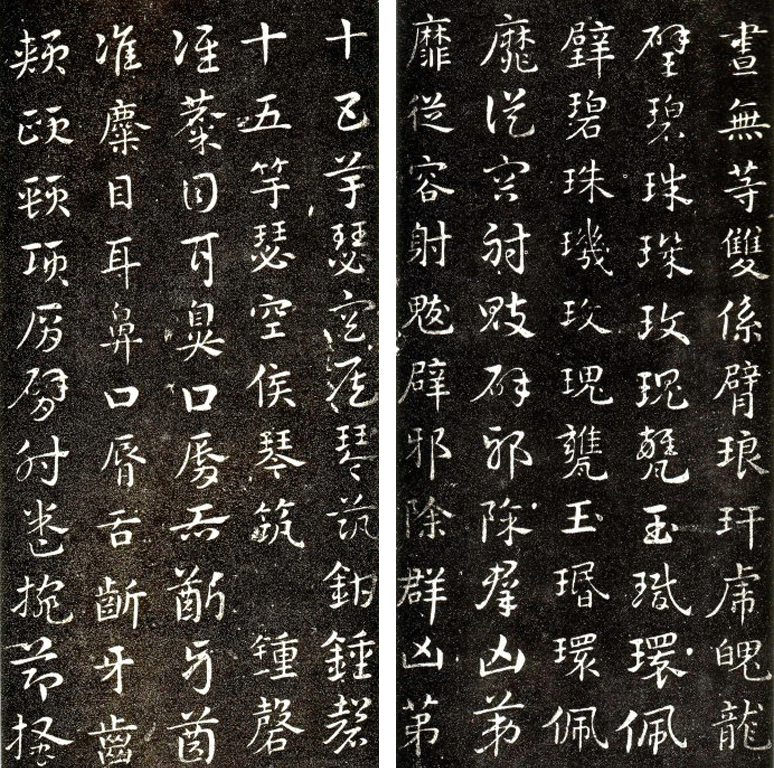 畫無等雙係臂琅玕虎魄龍
璧碧珠璣玫瑰甕玉環佩
璧碧珠璣玫瑰甕玉環佩
靡從容射鬾辟邪除群凶第
靡從容射鬾辟邪除群凶第
十五竽瑟空侯琴筑鈞鍾磬
十五竽瑟空侯琴筑鍾磬
准麋目耳鼻口脣舌齗牙齒
准麋目耳鼻口脣舌齗牙齒
頰頤頸項肩臂肘卷捥節搔